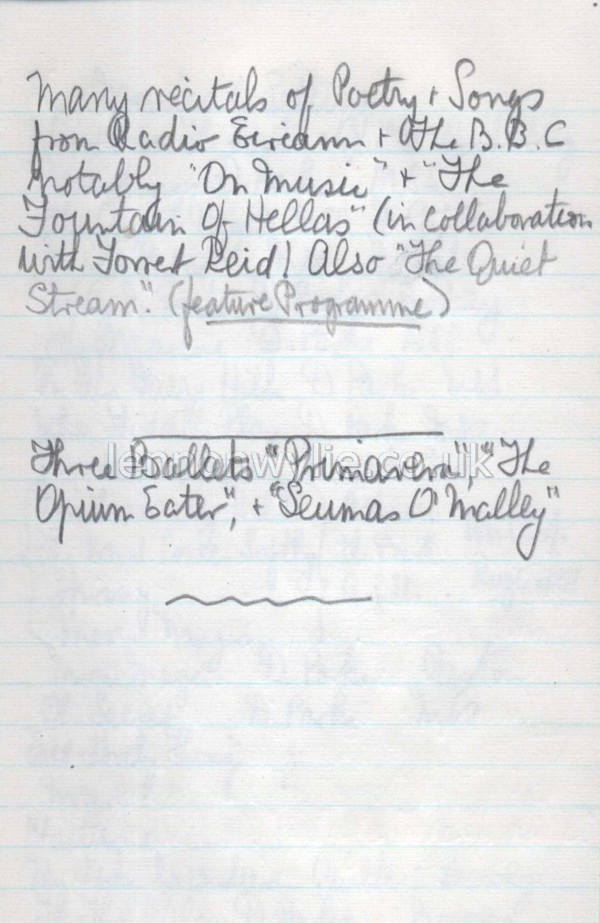 Many recitals of Poetry + Songs
from Radio Eireann + The B.B.C
notably "On Music" + "The
Fountain Of Hellas" (in collaboration
with Forret Reid) Also "The Quiet
Stream". (feature Programme)
Three Ballets "Primavera", "The
lennonwylie.co.uk
Opium Eater", + "Seumas O'Malley"